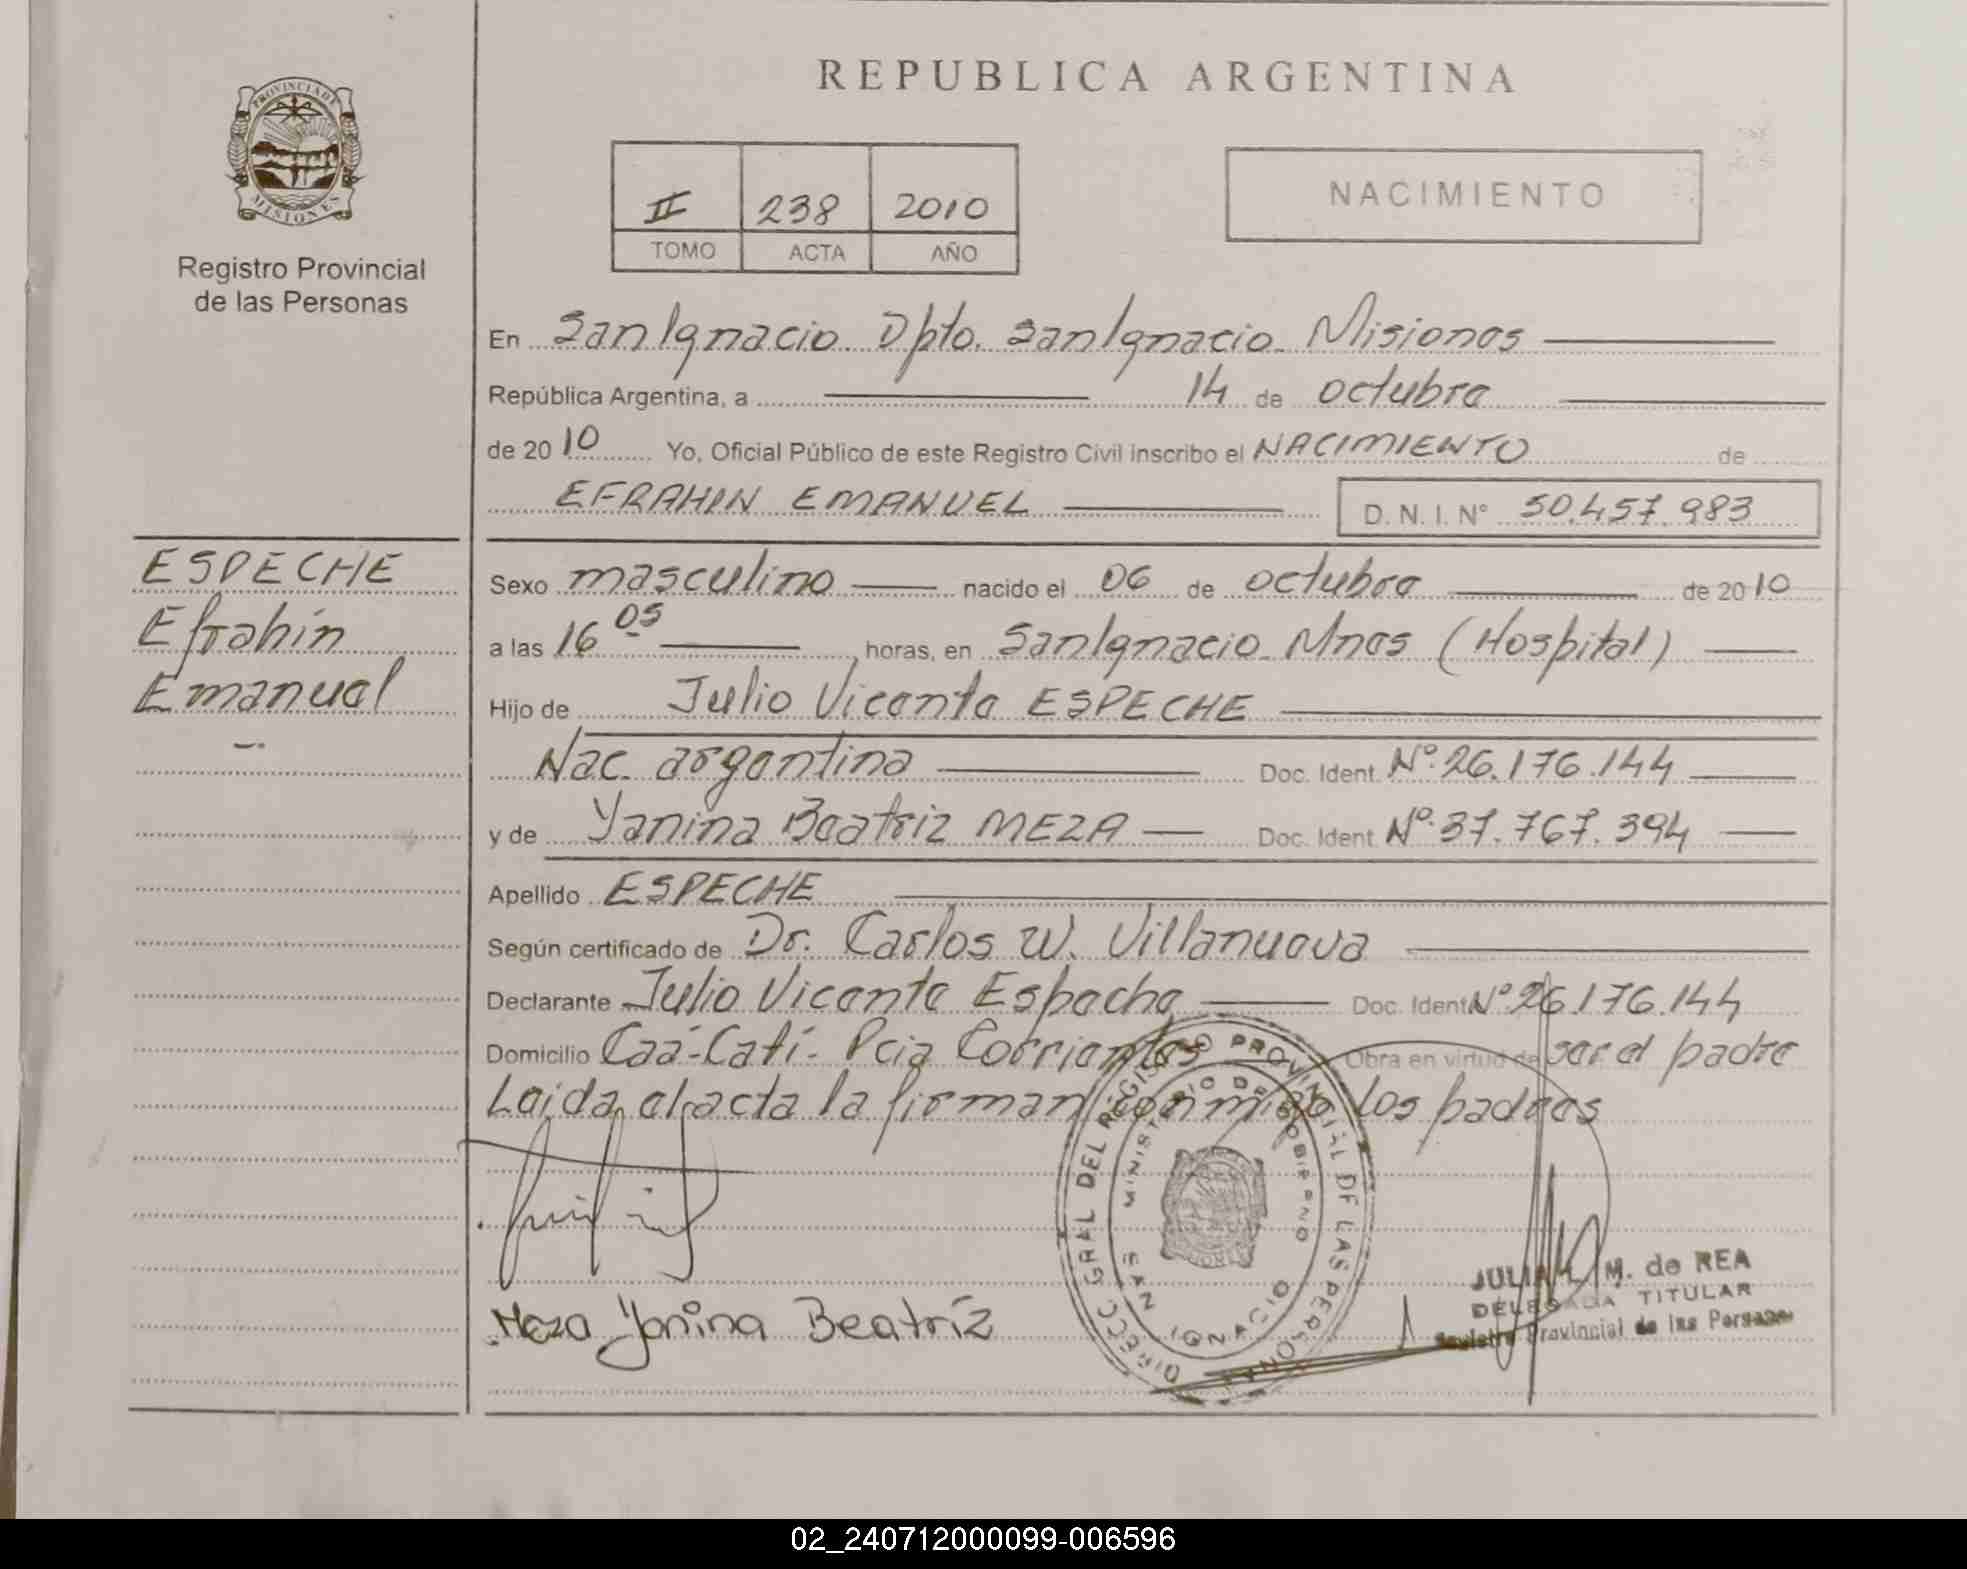 REPUBLICA ARGENTINA
PROVINCIA DE
MISIONES
Registro Provincial
de las Personas
II 238 2010
TOMO ACTA AÑO
NACIMIENTO
En San Ignacio Dpto. San Ignacio Misiones
República Argentina, a 14 de octubre
de 2010 Yo, Oficial Público de este Registro Civil inscribo el NACIMIENTO de
EFRAHIN EMANUEL D. N. I. N° 50.457.983
ESPECHE
Efrahin
Emanuel
Sexo masculino nacido el 06 de octubre de 2010
a las 16 05 horas, en San Ignacio Mnes (Hospital)
Hijo de Julio Vicente ESPECHE
Nac. argentina Doc. Ident. Nº 26.176.144
y de Yanina Beatriz MEZA Doc. Ident. Nº 37.767.394
Apellido ESPECHE
Según certificado de Dr. Carlos W. Villanueva
Declarante Julio Vicente Espeche Doc. Ident Nº 26.176.144
Domicilio Caá-Catí- Pcia Corrientes Obra en virtud de ser el padre
Leida el acta la firman conmigo los padres
DIRECC GRAL DEL REGISTRO PROVINCIAL DE LAS PERSONAS
MINISTERIO DE GOBIERNO
SAN IGNACIO
Meza Yanina Beatríz
M. de REA
DELEGADA TITULAR
Registro Provincial de las Personas
02_240712000099-006596